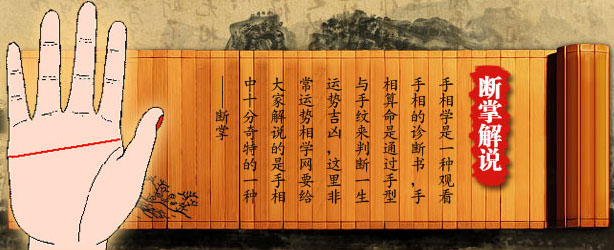 断掌解说
手相学是一种观看
手相的诊断书，手
相算命是通过手型
与手纹来判断一生
运势吉凶，这里非
常运势相学网要给
大家解说的是手相
中十分奇特的一种
——断掌